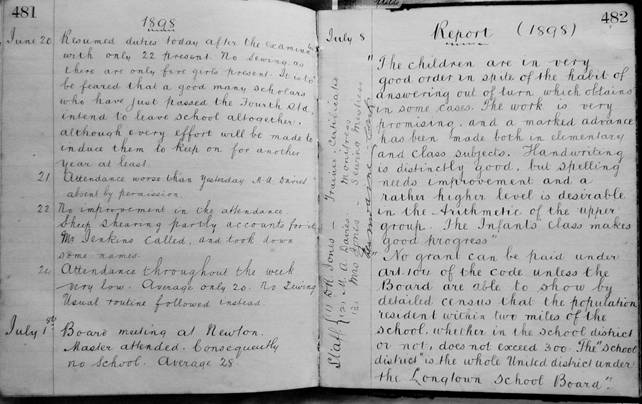 481
1898
June 20 Resumed duties today after the Examinn
with only 22 present. No Sewing as
there are only five girls present. It is to
be feared that a good many scholars
who have just passed the Fourth Std.
intend to leave school altogether,
although every effort will be made to
induce them to keep on for another
year at least.
21 Attendance worse than yesterday M. A. Davies
absent by permission.
22 No improvement in the attendance
Sheep Shearing partly accounts for it
Mr Jenkins called, and took down
some names.
Attendance throughout the week
very low. Average only 20. No Sewing
Usual routine followed instead.
July 1st Board meeting at Newton.
Master attended. Consequently
no School. Average 28
482
July 8 Report (1898)
"The children are in very
good order in spite of the habit of
answering out of turn which obtains
in some cases. The work is very
promising, and a marked advance
has been made both in elementary
and class subjects. Handwriting
is distinctly good, but spelling
needs improvement and a
rather higher level is desirable
in the Arithmetic of the upper
group. The Infants' class makes
good progress"
"No grant can be paid under
Art 105 of the code unless the
Board are able to show by
detailed census that the population
resident within two miles of the
school, whether in the school district
or not, does not exceed 300. The "School
district" is the whole United district under
the Longtown School Board".
Staff (1) Jones - Trained Certificated
(2) M. A. Davies - Monitress
(3) Mrs Jones - Sewing Mistress